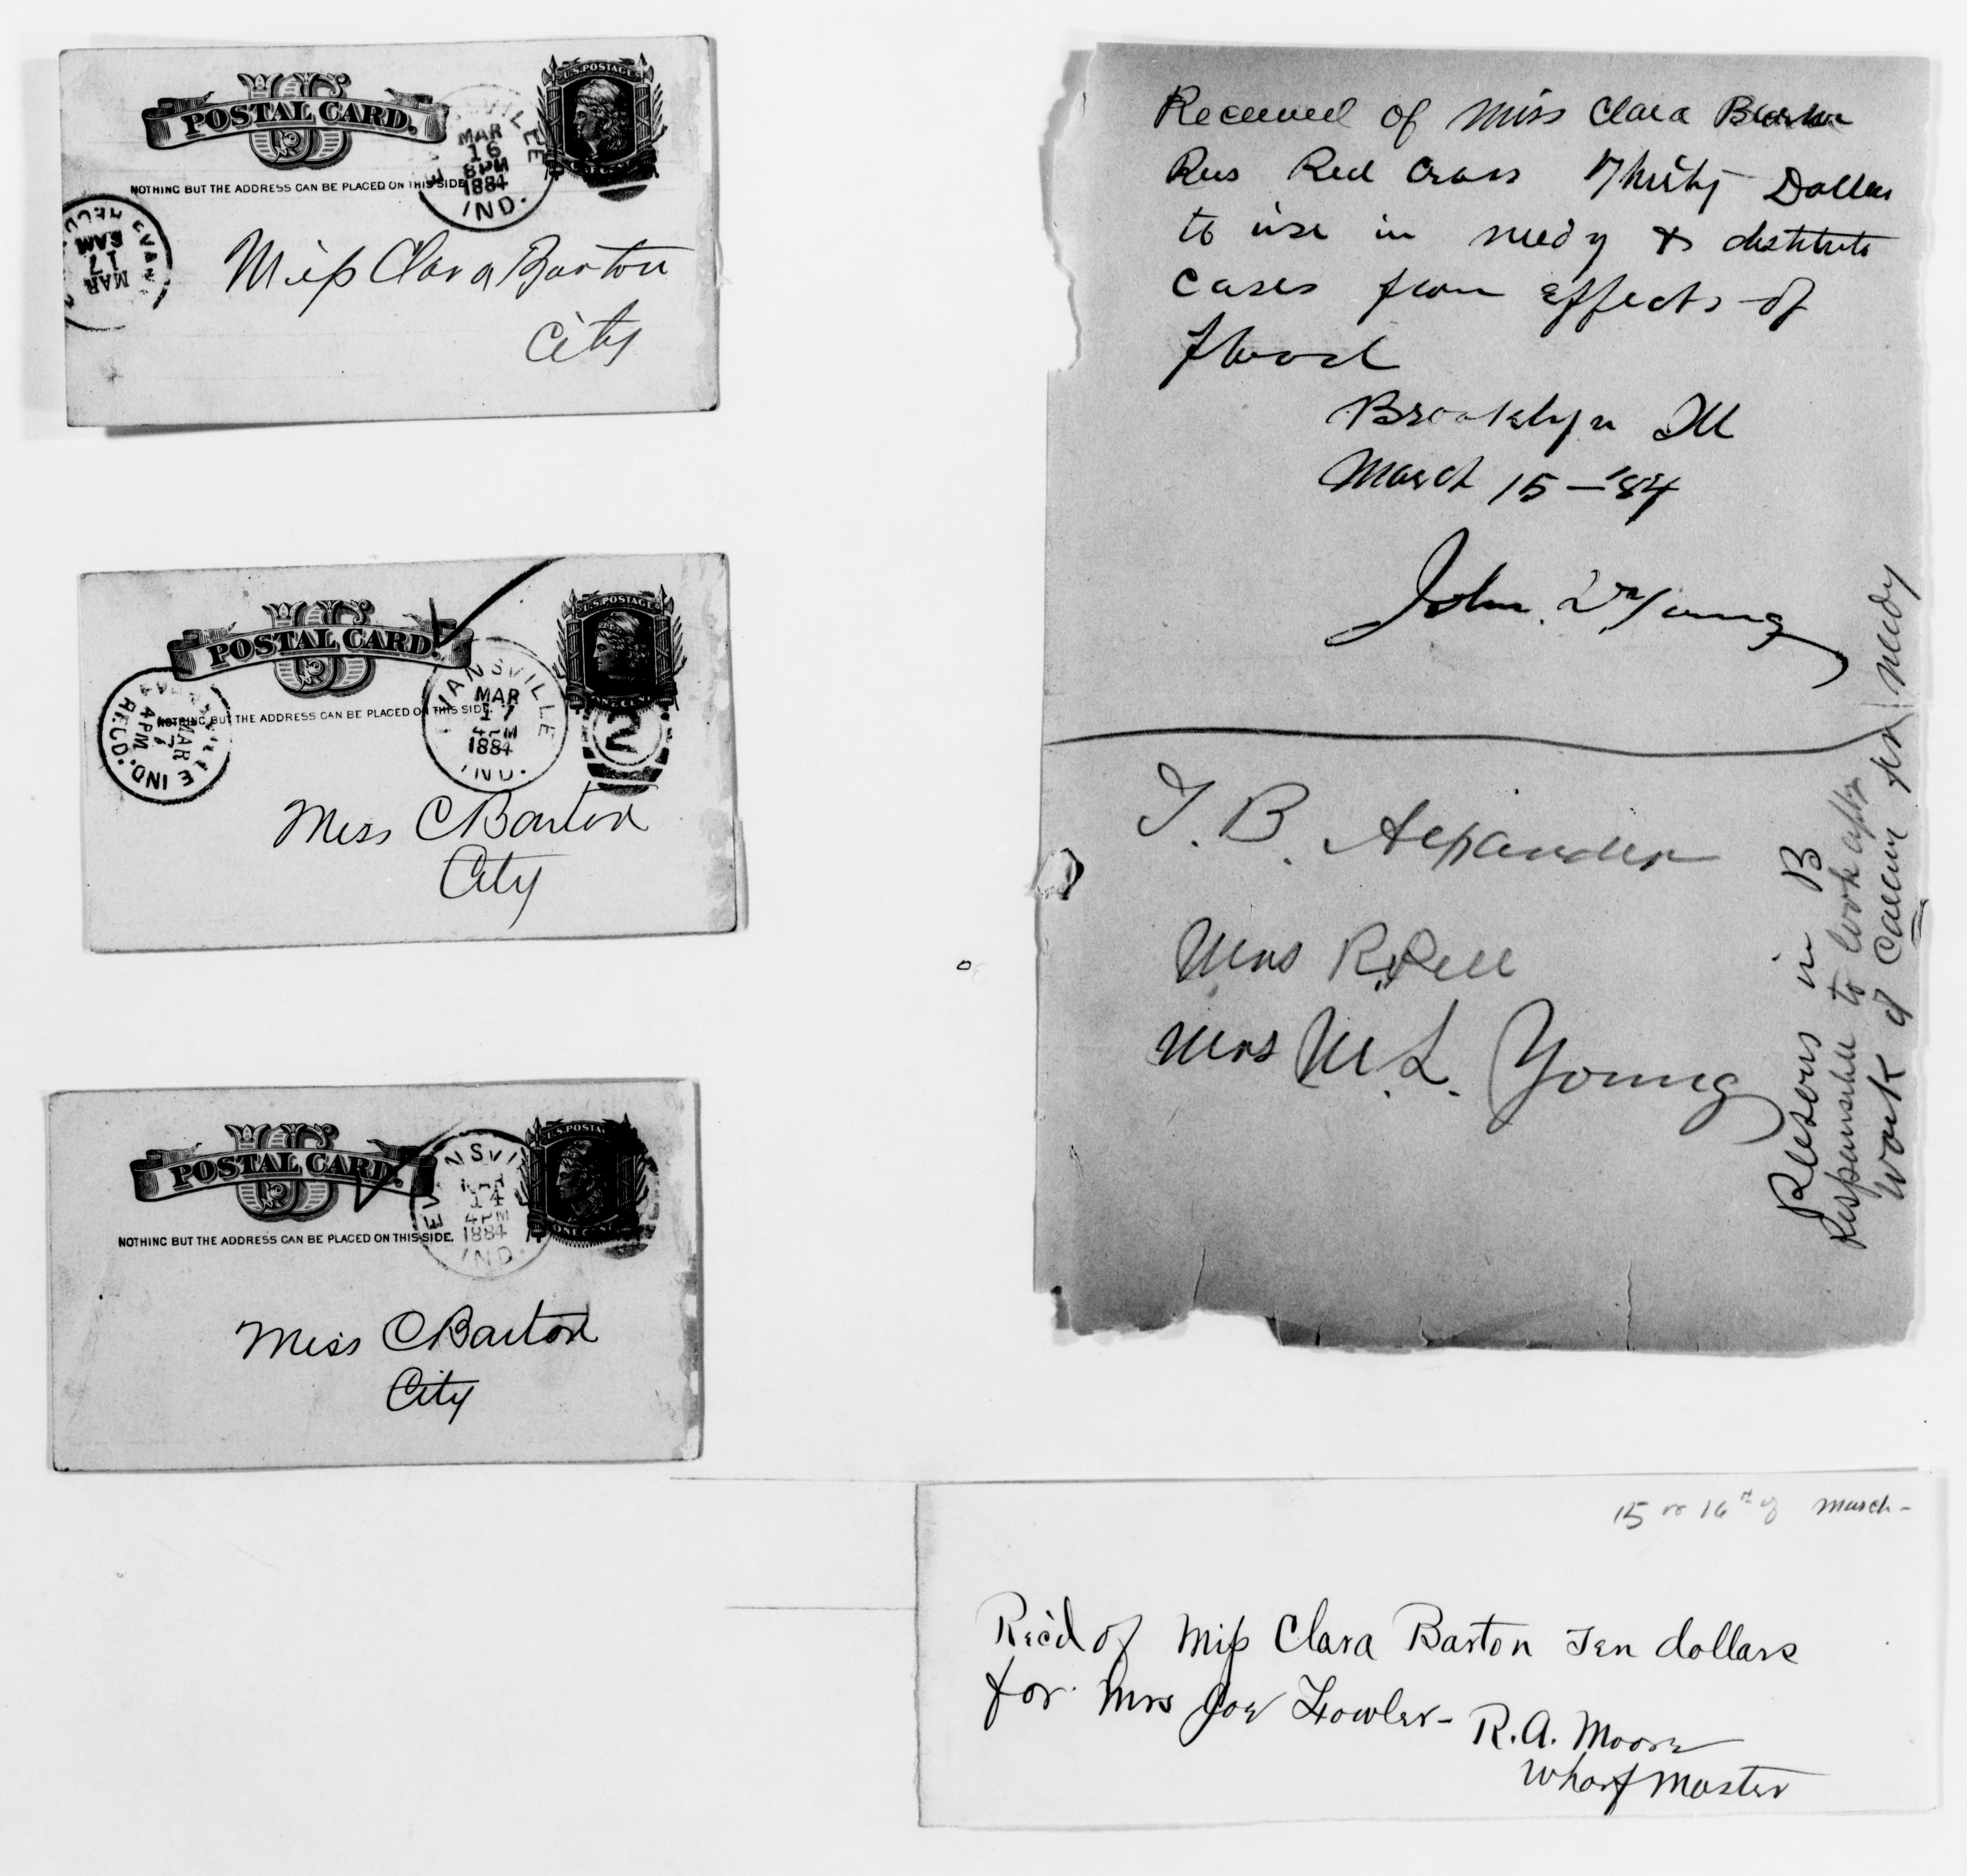 US
POSTAL CARD.
U.S. POSTAGE
NOTHING BUT THE ADDRESS CAN BE PLACED ON THIS SIDE.
MAR
16
8PM
1884
IND.
MAR
17
Miss Clara Barton
City
US
POSTAL CARD.
U.S. POSTAGE
ONE CENT
NOTHING BUT THE ADDRESS CAN BE PLACED ON THIS SIDE.
EVANSVILLE
MAR
17
4PM
1884
IND.
2
REC'D.
4PM
MAR
IND
Miss C Barton
City
US
POSTAL CARD.
U.S. POSTAGE
ONE CENT
NOTHING BUT THE ADDRESS CAN BE PLACED ON THIS SIDE.
EVANSVI
14
4PM
1884
IND.
Miss C Barton
City
Received of Miss Clara Barton
Red Cross Thirty Dollars
to use in needy & destitute
cases from effects of
flood
Brooklyn Ill
March 15 - '84
John Young
T. B. Alexander
Mrs
Mrs M. L. Young
in B
to look after
work of for needy
15 or 16th of March -
Rec'd of Miss Clara Barton Ten dollars
for Mrs Joe Fowler - R. A. Moore
Wharf Master